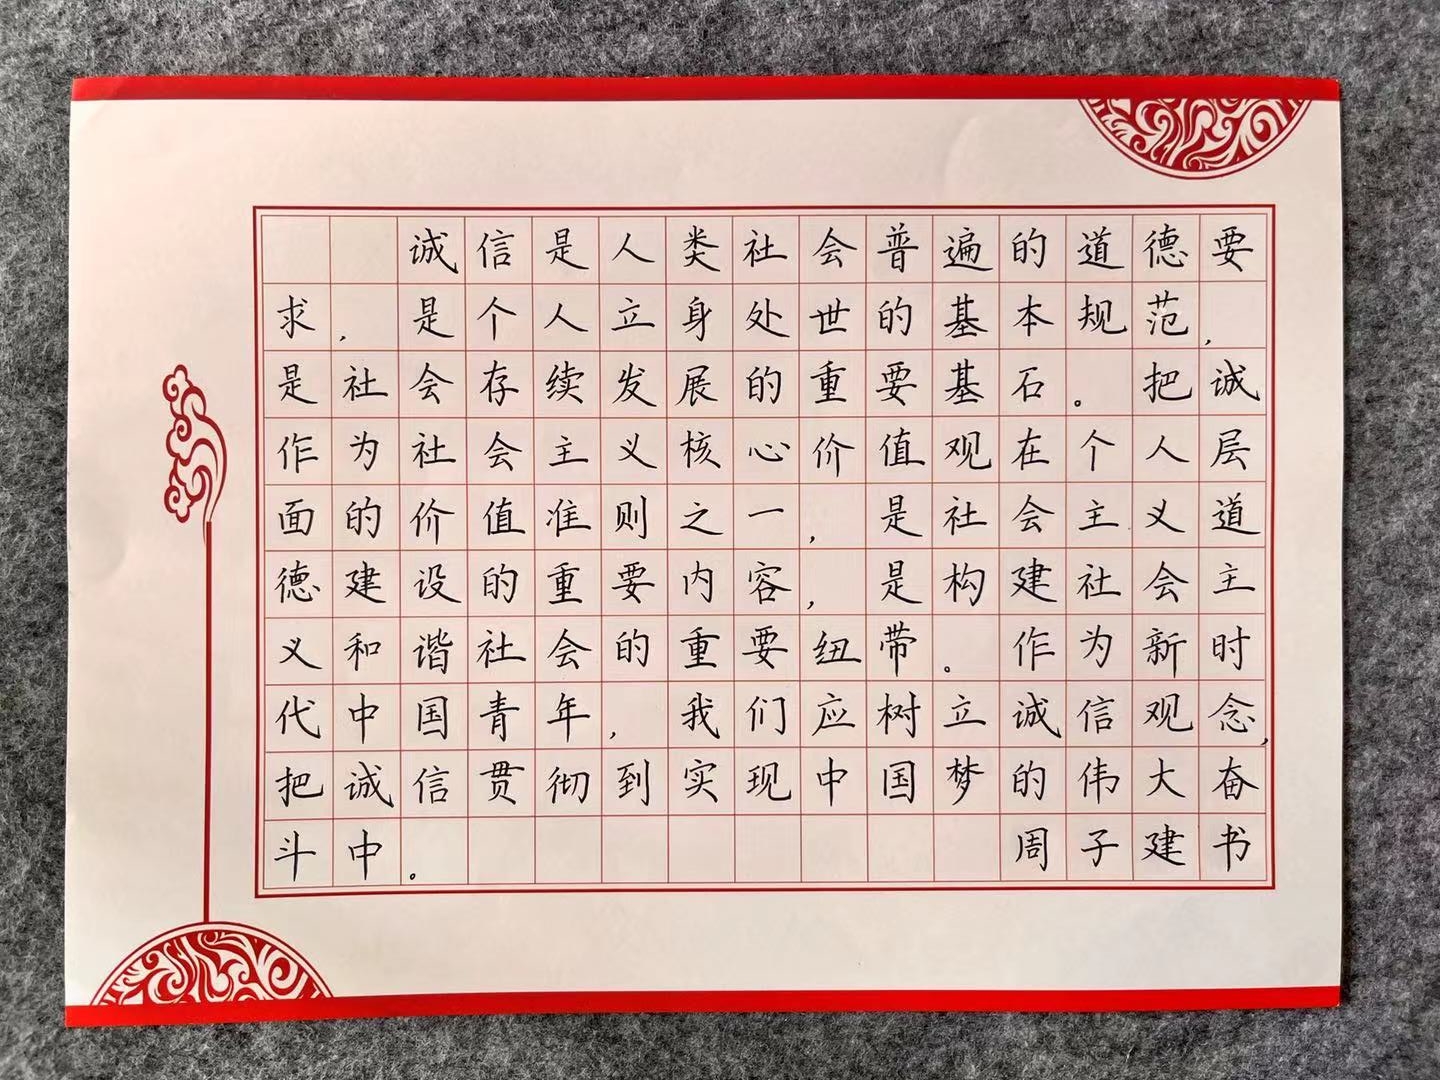 诚信是人类社会普遍的道德要
求,是个人立身处世的基本规范,
是社会存续发展的重要基石。把诚
作为社会主义核心价值观在个人层
面的价值准则之一,是社会主义道
德建设的重要内容,是构建社会主
义和谐社会的重要纽带。作为新时
代中国青年,我们应树立诚信观念,
把诚信贯彻到实现中国梦的伟大奋
斗中。 周子建书